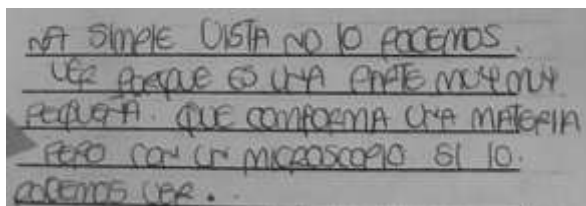 A SIMPLE VISTA NO lO PODEMOS.
VER PORQUE ES UNA PARTE MUY MUY
PEQUEÑA. QUE CONFORMA UNA MATERIA
PERO CON UN MICROSCOPIO SI lO.
PODEMOS VER. .